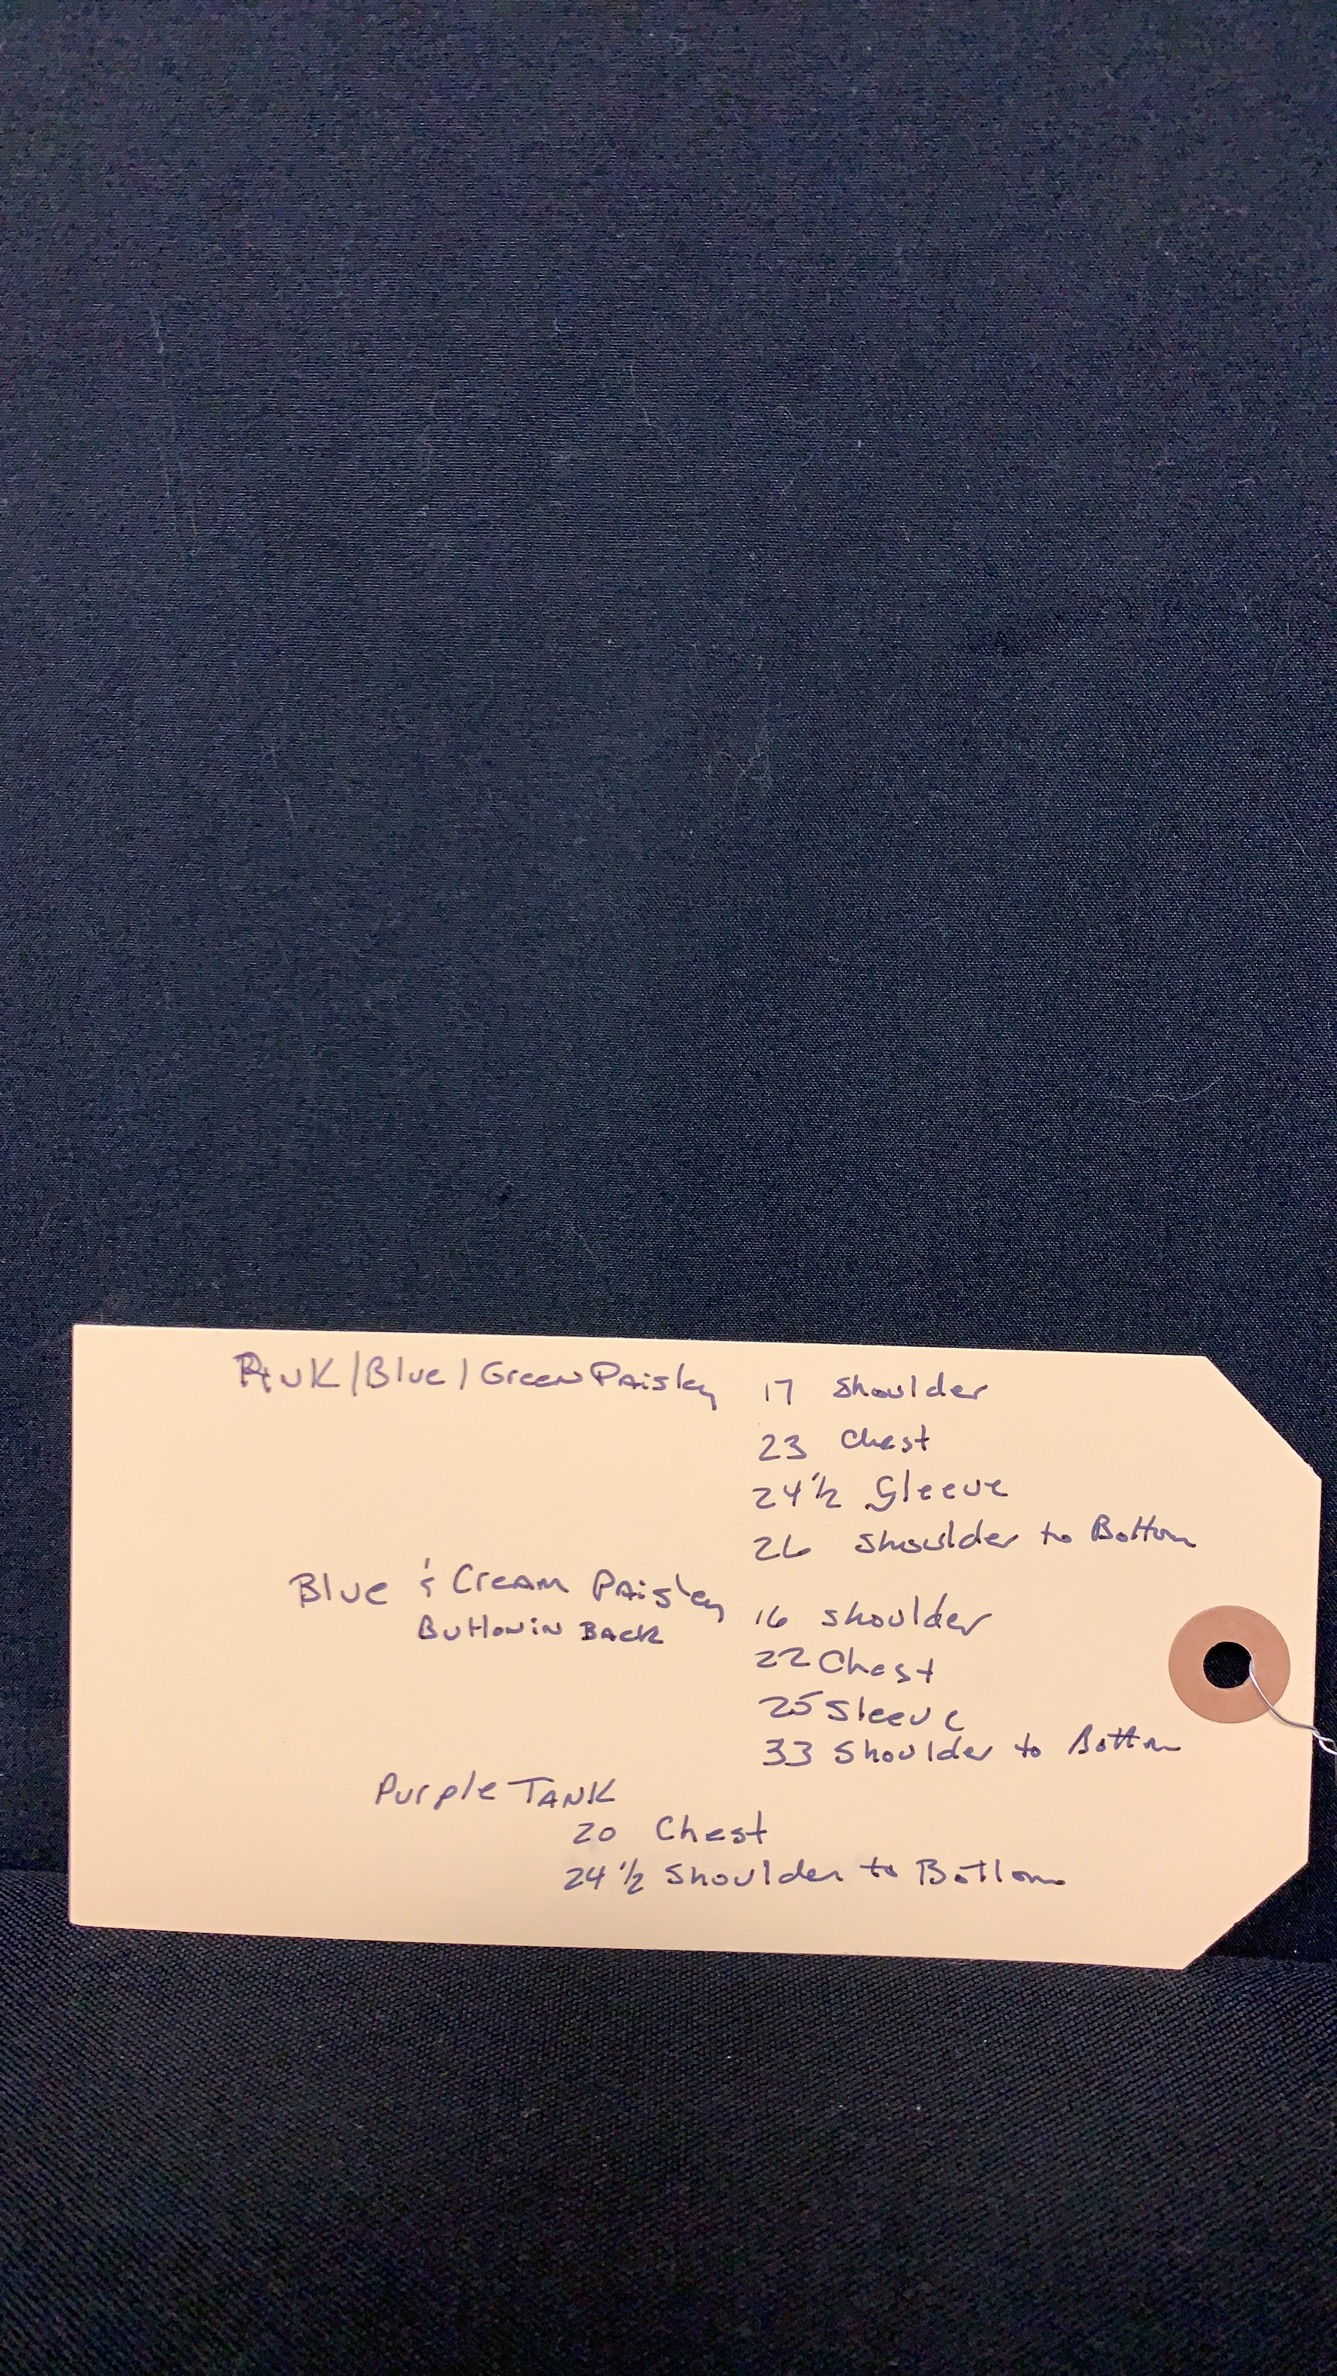 Pink/Blue/Green Paisley 17 Shoulder
23 Chest
24 1/2 Sleeve
26 Shoulder to Bottom
Blue & Cream Paisley 16 Shoulder
Button in Back
22 Chest
25 Sleeve
33 Shoulder to Bottom
Purple Tank
20 Chest
24 1/2 Shoulder to Bottom